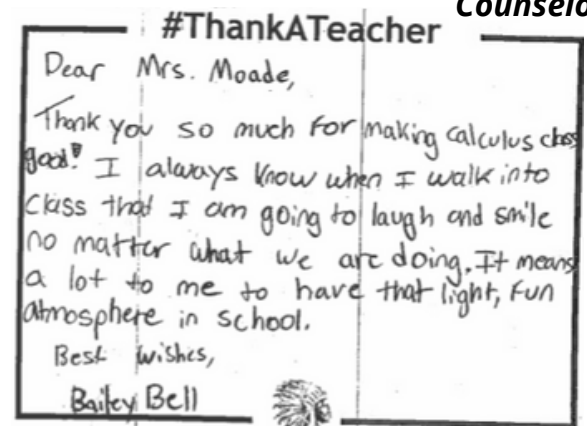 Counselo
#ThankATeacher
Dear Mrs. Moade,
Thank you so much for making calculus class
good! I always know when I walk into
class that I am going to laugh and smile
no matter what we are doing. It means
a lot to me to have that light, fun
atmosphere in school.
Best wishes,
Bailey Bell